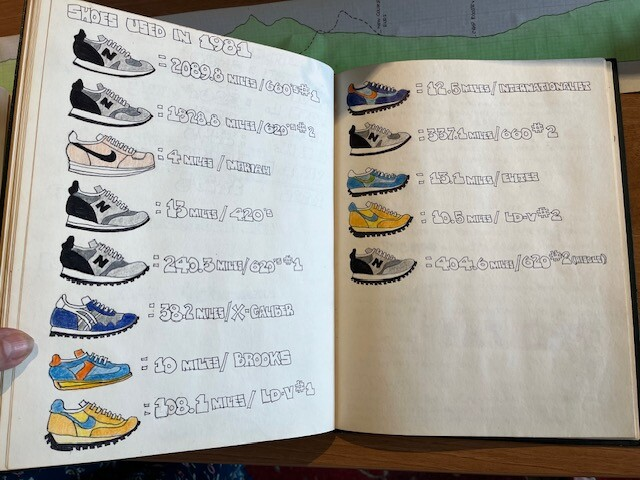 SHOES USED IN 1981
: 2089.8 MILES/660'S #1
: 1328.8 MILES/620'S #2
: 4 MILES / MARIAH
: 13 MILES/ 420'S
: 240.3 MILES/620'S #1
: 38.2 MILES/X-CALIBER
: 10 MILES/ BROOKS
: 108.1 MILES/ LD-V #1
: 12.5 MILES/ INTERNATIONALIST
: 337.1 MILES/ 660 #2
: 13.1 MILES/ ELITES
: 10.5 MILES/ LD-V #2
: 404.6 MILES/620 #2